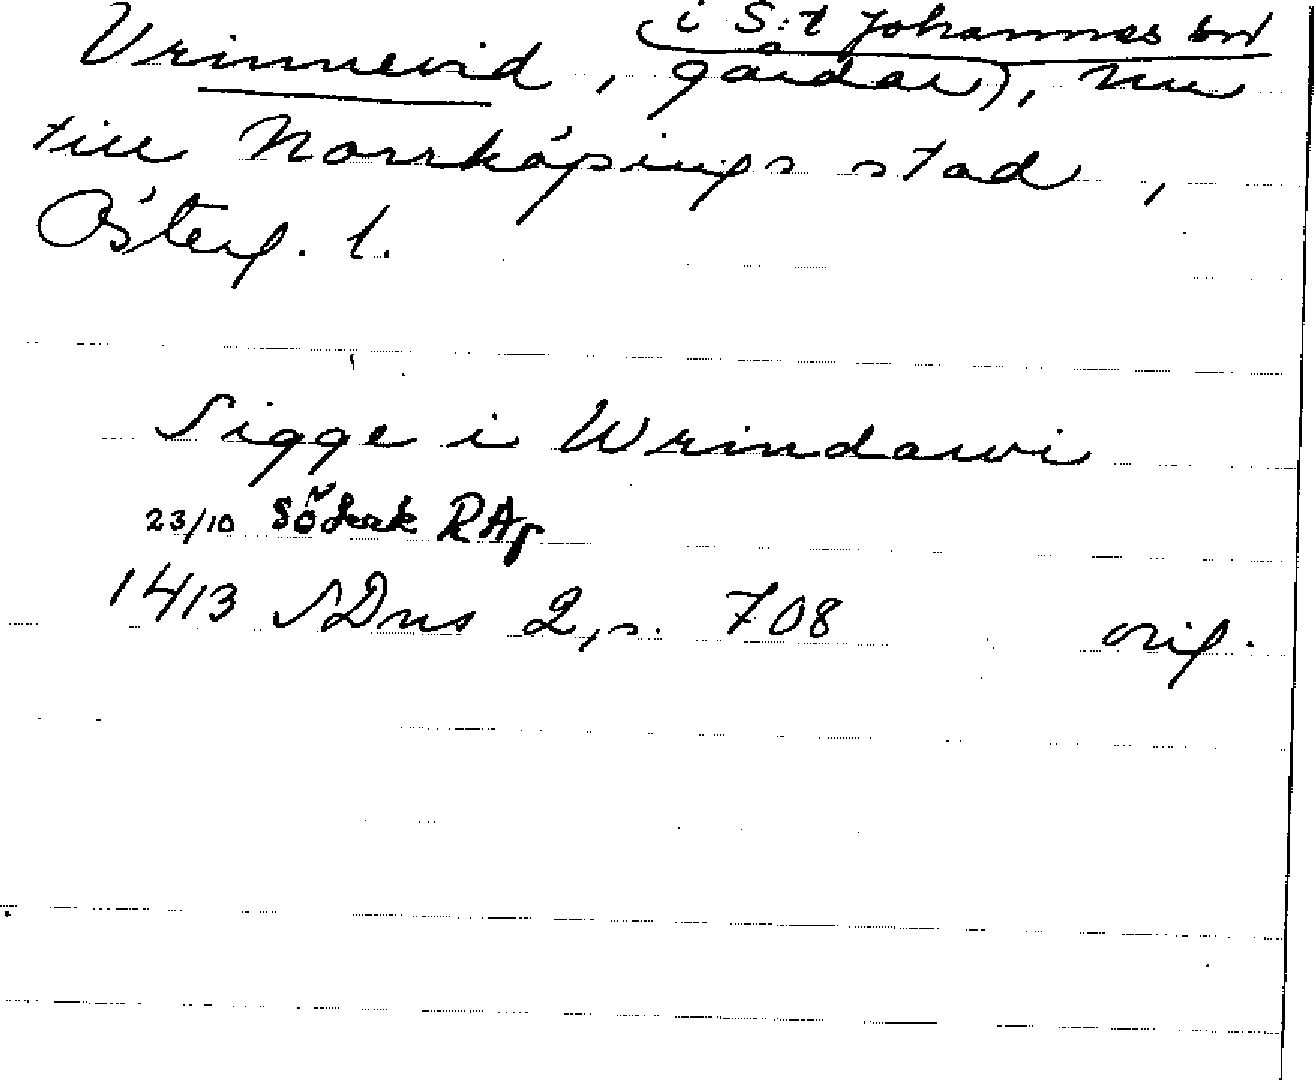 (i S:t Johannes sn
Vrinnevid, gårdar), nu
till Norrköpings stad,
Österg. l.
Sigge i Wrindawi
23/10 Söderk RAp
1413 SDns 2, s. 708 orig.